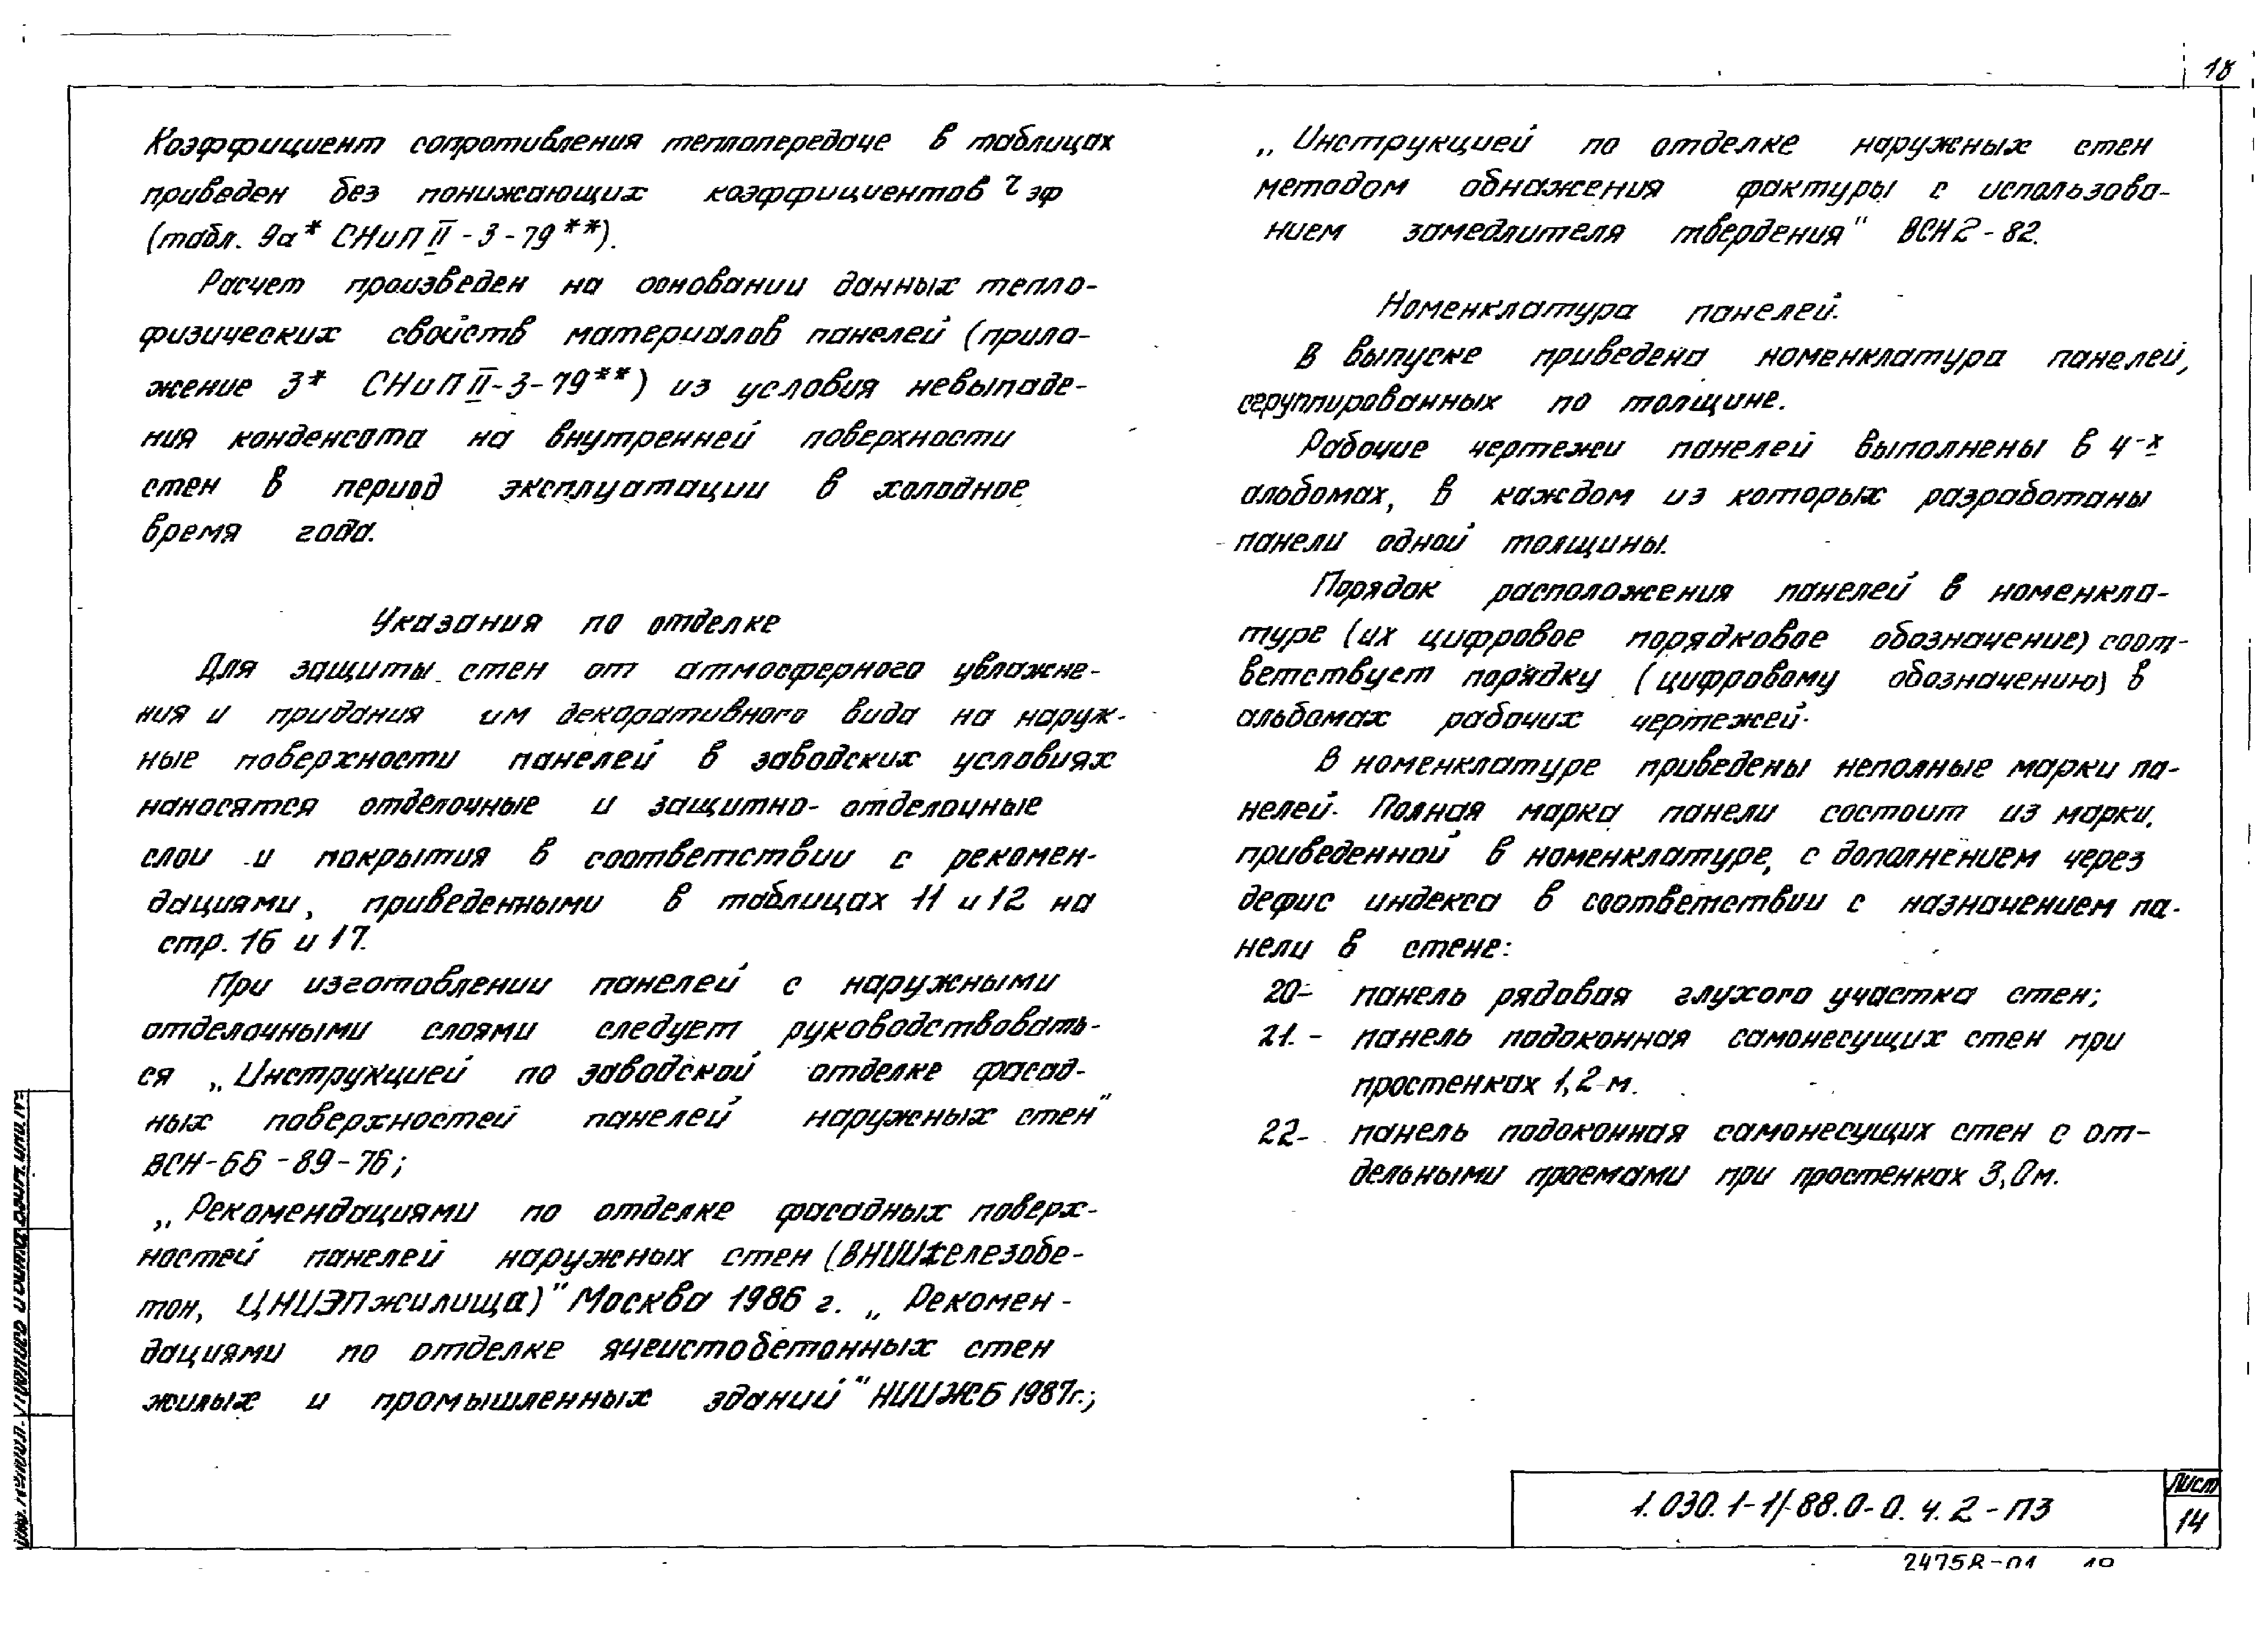 18
Коэффициент сопротивления теплопередаче в таблицах
приведен без понижающих коэффициентов r эф
(табл. 9а* СНиП II-3-79**).
Расчет произведен на основании данных тепло-
физических свойств материалов панелей (прило-
жение 3* СНиП II-3-79**) из условия невыпаде-
ния конденсата на внутренней поверхности
стен в период эксплуатации в холодное
время года.
Указания по отделке
Для защиты стен от атмосферного увлажне-
ния и придания им декоративного вида на наруж-
ные поверхности панелей в заводских условиях
наносятся отделочные и защитно-отделочные
слои и покрытия в соответствии с рекомен-
дациями, приведенными в таблицах 11 и 12 на
стр. 16 и 17.
При изготовлении панелей с наружными
отделочными слоями следует руководствовать-
ся „Инструкцией по заводской отделке фасад-
ных поверхностей панелей наружных стен"
ВСН-66-89-76;
„Рекомендациями по отделке фасадных поверх-
ностей панелей наружных стен (ВНИИжелезобе-
тон, ЦНИЭПжилища)" Москва 1986 г. „Рекомен-
дациями по отделке ячеистобетонных стен
жилых и промышленных зданий" НИИЖБ 1987г.;
„Инструкцией по отделке наружных стен
методом обнажения фактуры с использова-
нием замедлителя твердения" ВСН 2-82.
Номенклатура панелей.
В выпуске приведена номенклатура панелей,
сгруппированных по толщине.
Рабочие чертежи панелей выполнены в 4-х
альбомах, в каждом из которых разработаны
панели одной толщины.
Порядок расположения панелей в номенкла-
туре (их цифровое порядковое обозначение) соот-
ветствует порядку (цифровому обозначению) в
альбомах рабочих чертежей.
В номенклатуре приведены неполные марки па-
нелей. Полная марка панели состоит из марки,
приведенной в номенклатуре, с дополнением через
дефис индекса в соответствии с назначением па-
нели в стене:
20- панель рядовая глухого участка стен;
21.- панель подоконная самонесущих стен при
простенках 1,2 м.
22- панель подоконная самонесущих стен с от-
дельными проемами при простенках 3,0м.
1.030.1-1/88.0-0.ч.2-ПЗ
Лист
14